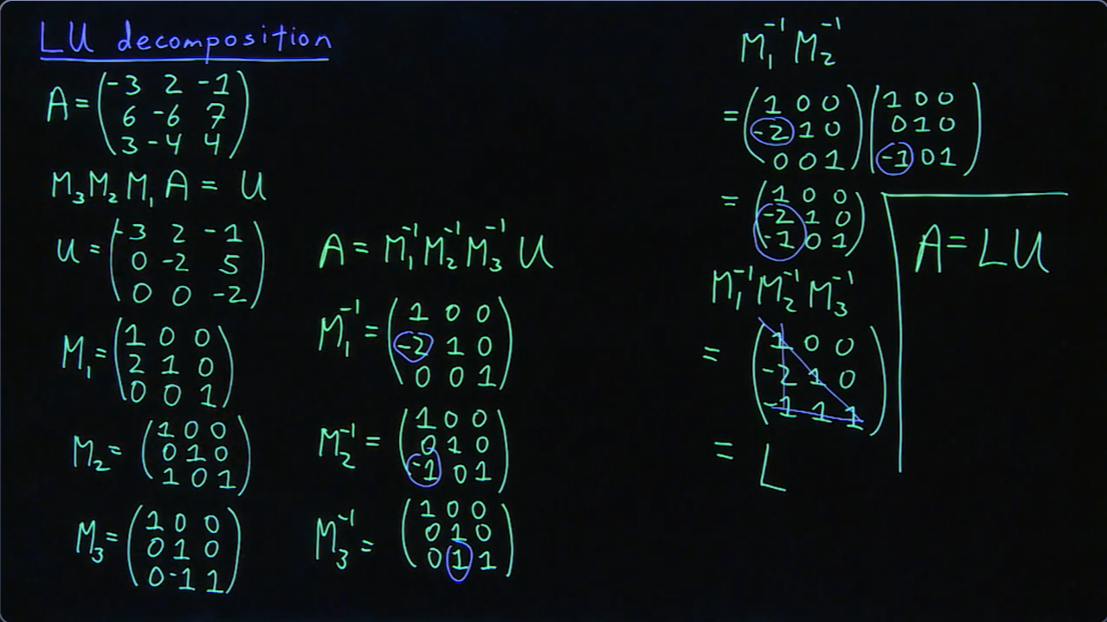 LU decomposition
A = (-3 2 -1
6 -6 7
3 -4 4)
M₃M₂M₁A = U
U = (-3 2 -1
0 -2 5
0 0 -2)
M₁ = (1 0 0
2 1 0
0 0 1)
M₂ = (1 0 0
0 1 0
1 0 1)
M₃ = (1 0 0
0 1 0
0 -1 1)
A = M₁⁻¹M₂⁻¹M₃⁻¹U
M₁⁻¹ = (1 0 0
-2 1 0
0 0 1)
M₂⁻¹ = (1 0 0
0 1 0
-1 0 1)
M₃⁻¹ = (1 0 0
0 1 0
0 1 1)
M₁⁻¹M₂⁻¹
= (1 0 0 ) (1 0 0
-2 1 0 0 1 0
0 0 1) -1 0 1)
= (1 0 0
-2 1 0
-1 0 1)
M₁⁻¹M₂⁻¹M₃⁻¹
= (1 0 0
-2 1 0
-1 1 1)
= L
A = LU